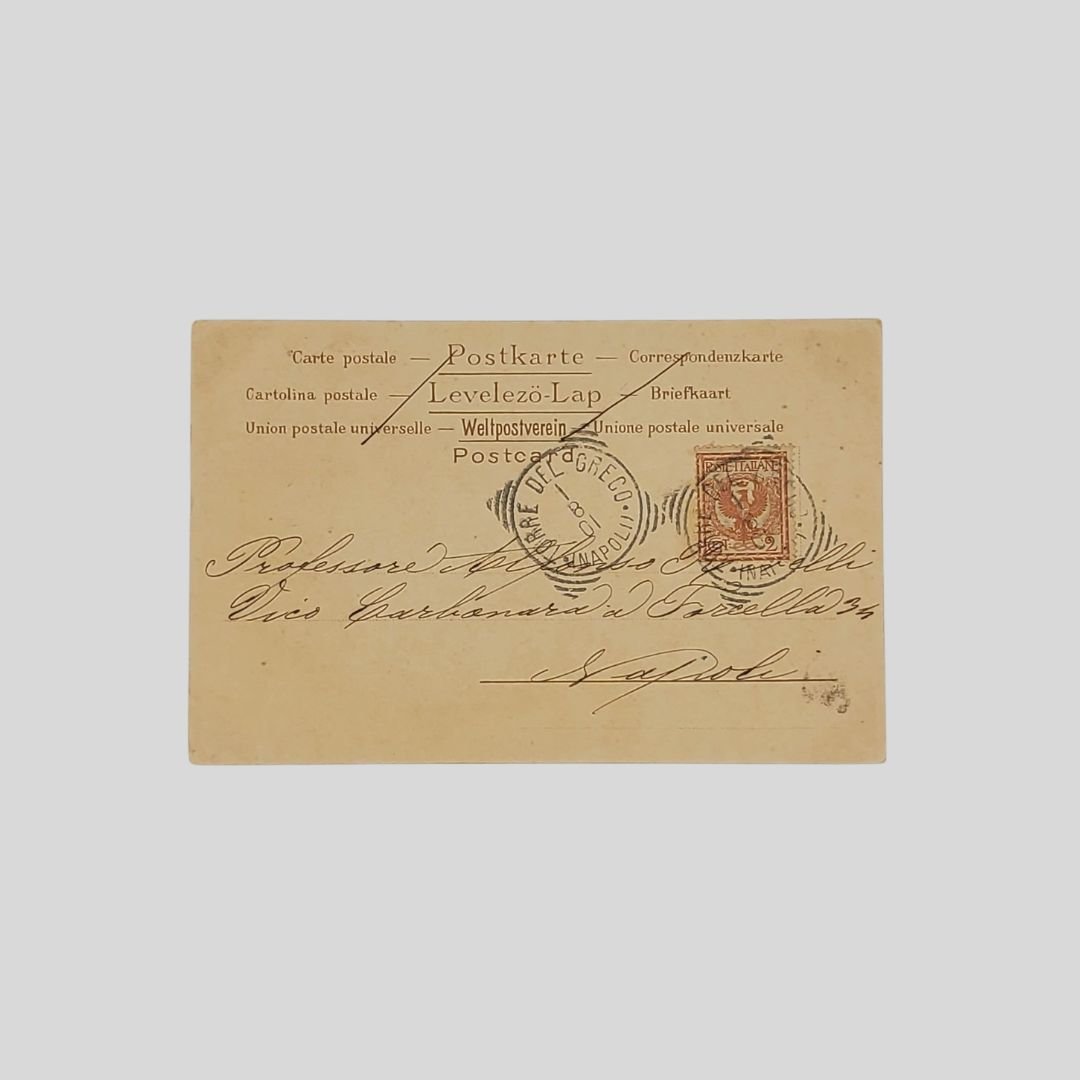 Carte postale — Postkarte — Correspondenzkarte
Cartolina postale — Levelezö-Lap — Briefkaart
Union postale universelle — Weltpostverein — Unione postale universale
Postcard
TORRE DEL GRECO
1 8 01
(NAPOLI)
POSTE ITALIANE
C 2
Professore Alfonso
Vico Carbonara a Forcella 34
Napoli